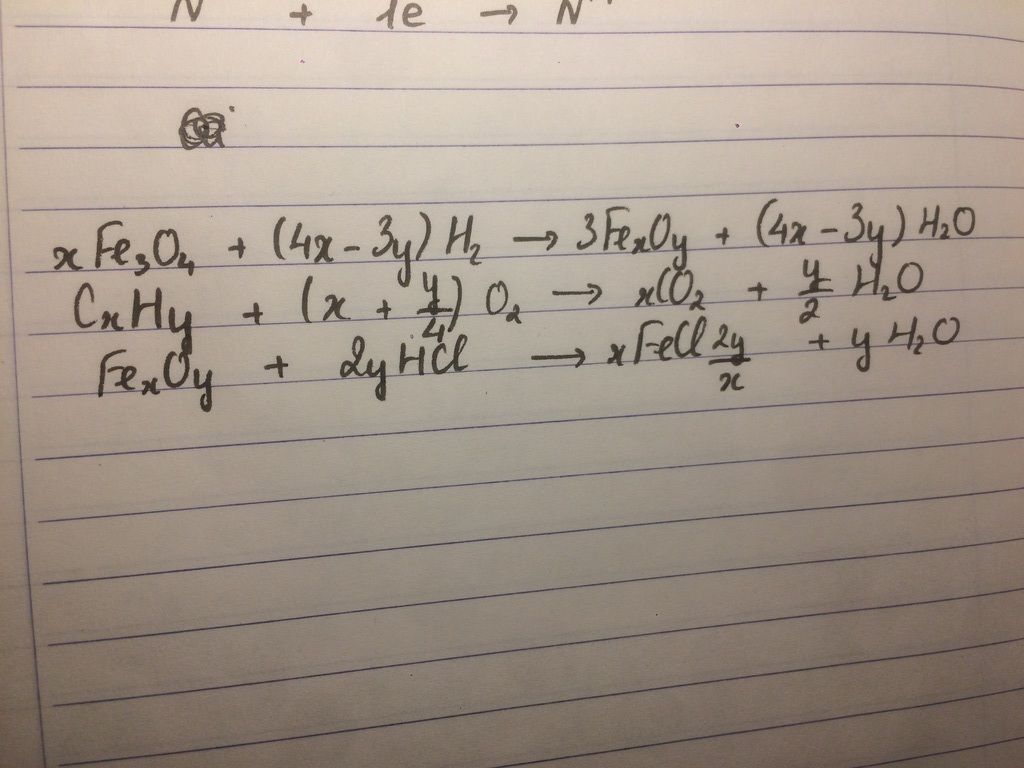 N + 1e → N
xFe₃O₄ + (4x - 3y) H₂ → 3FeₓOy + (4x - 3y) H₂O
CₓHy + (x + y/4) O₂ → xCO₂ + y/2 H₂O
FeₓOy + 2yHCl → xFeCl 2y/x + y H₂O